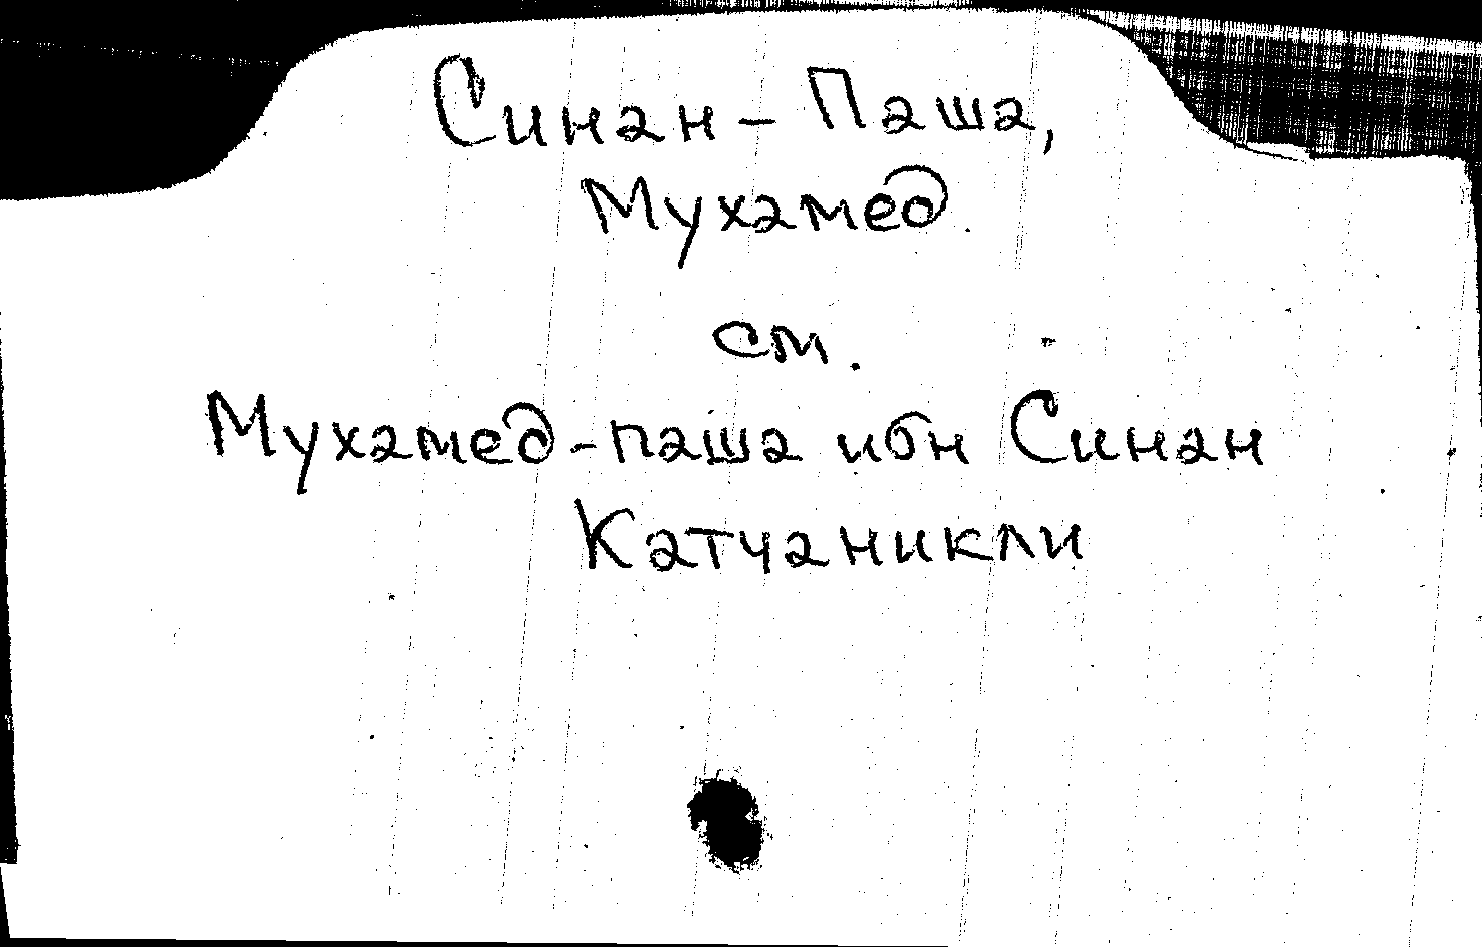 Синан - Паша,
Мухамед
см.
Мухамед-паша ибн Синан
Катчаникли